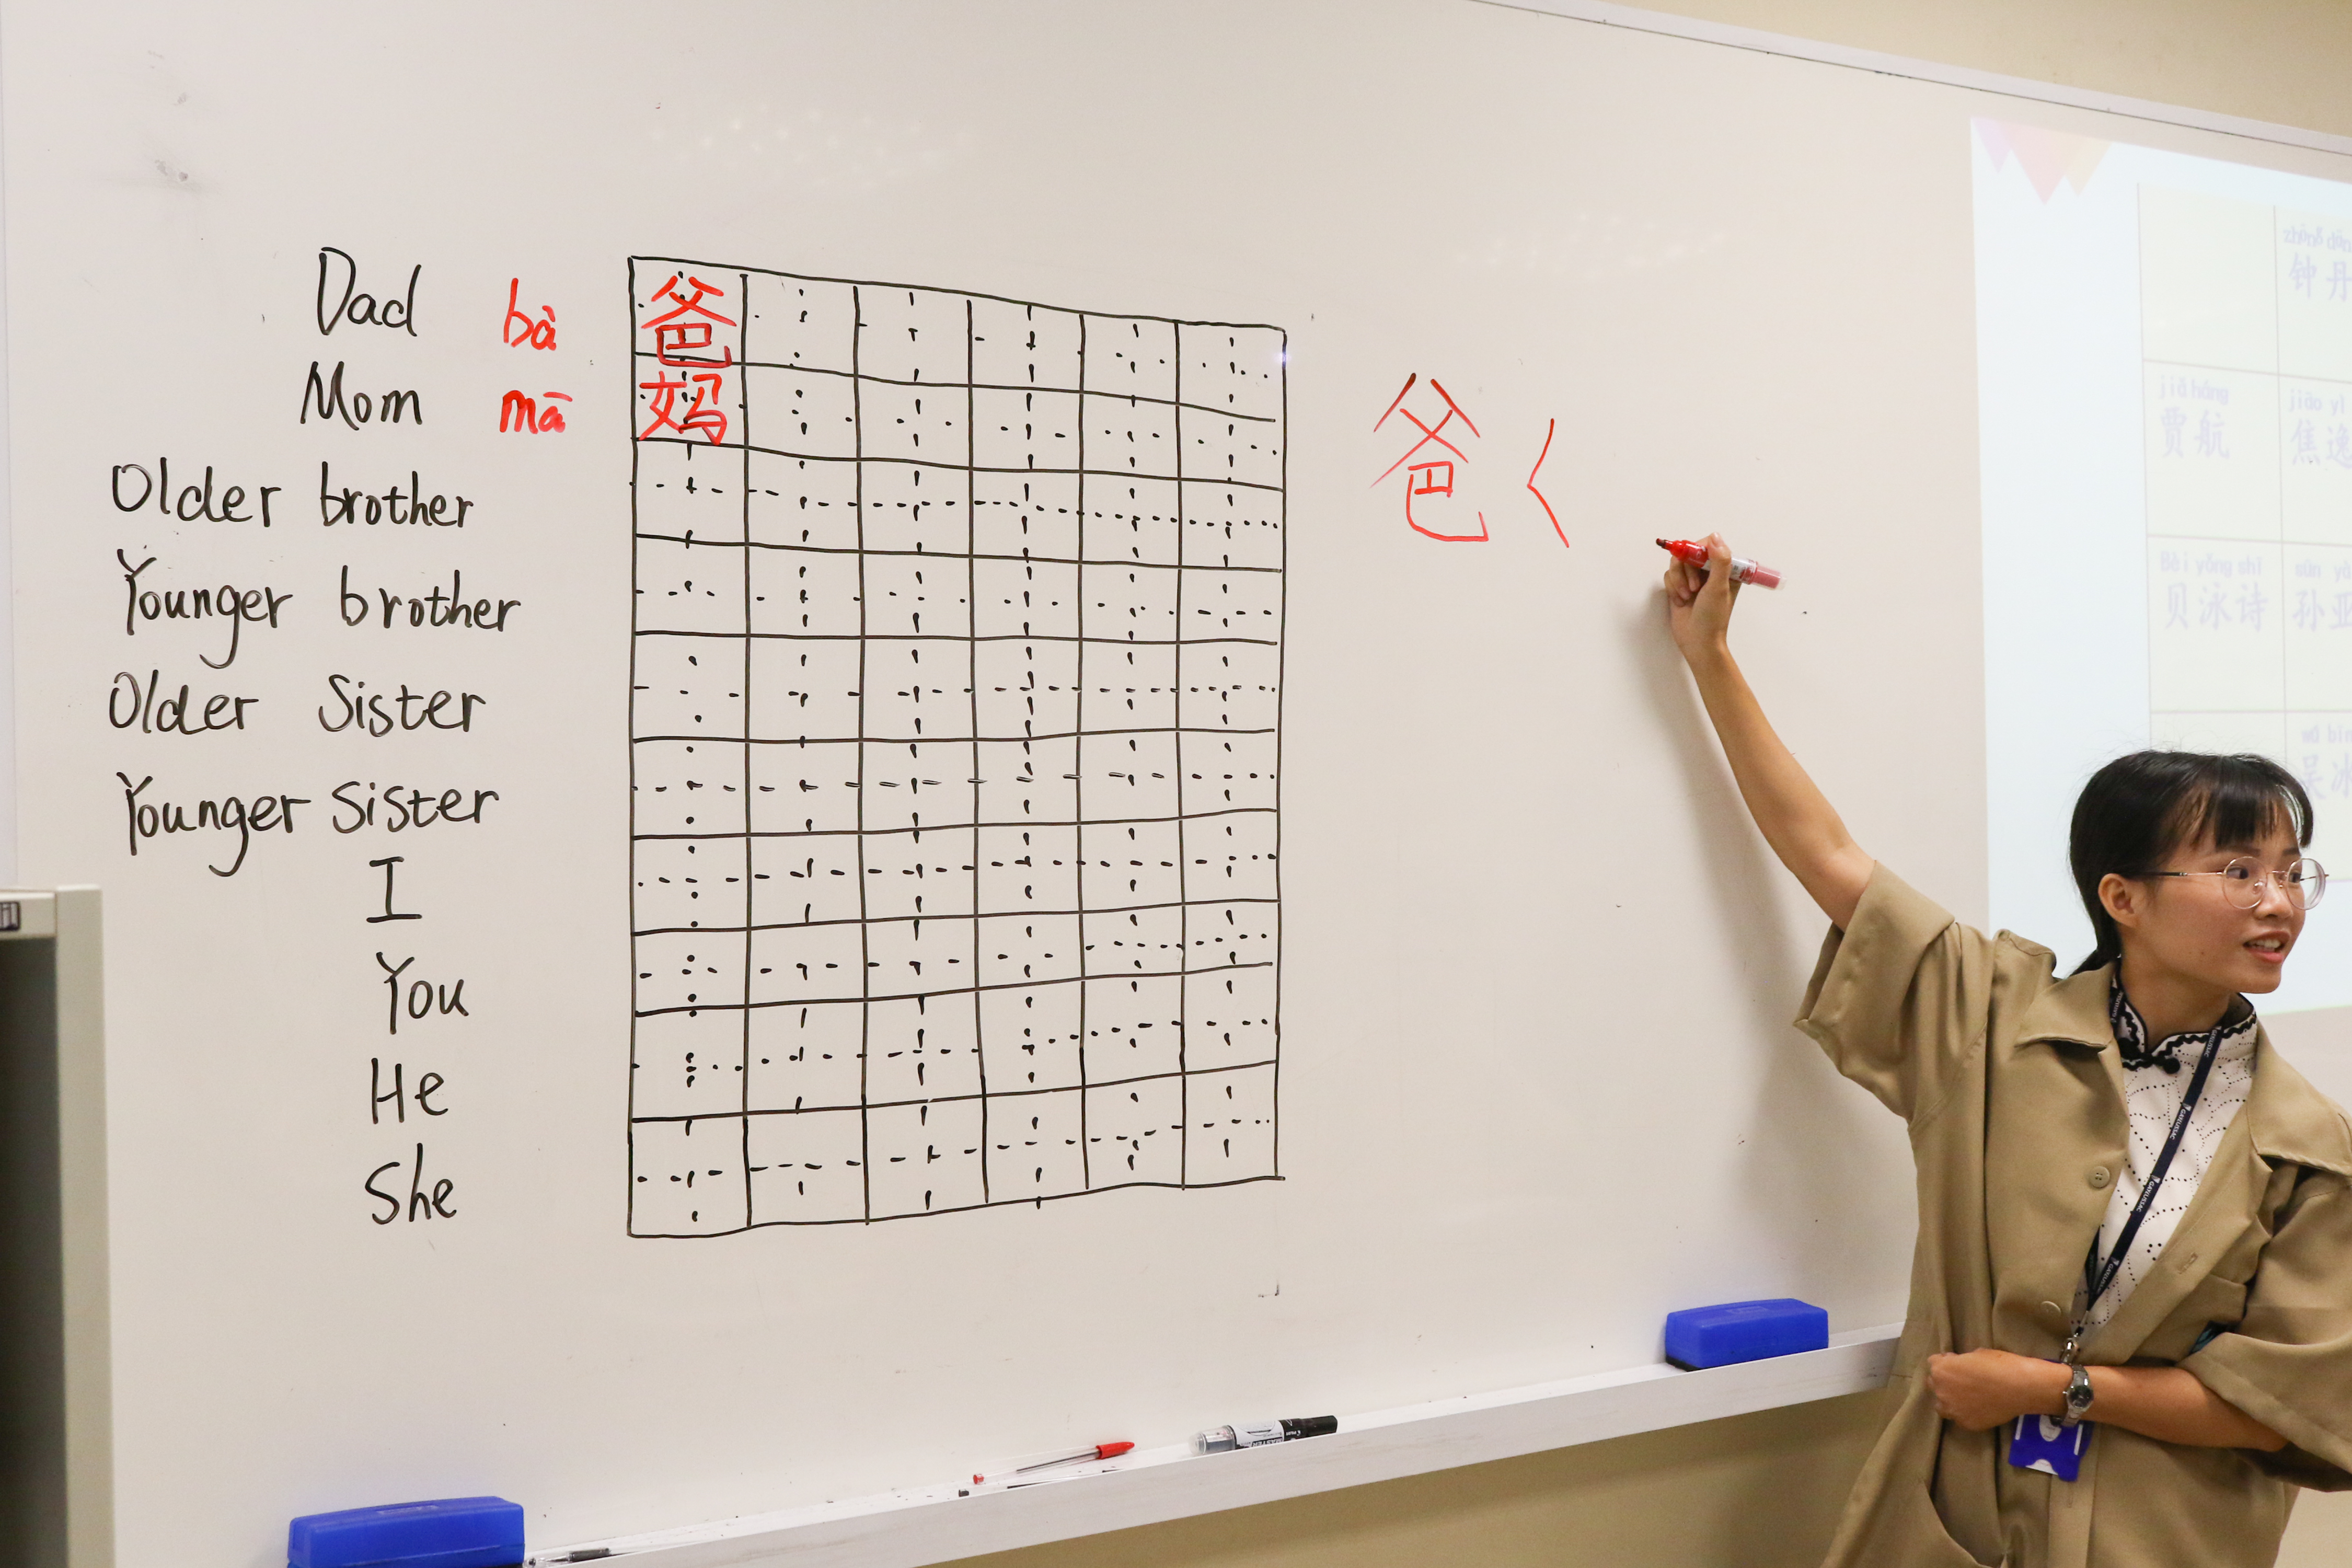 Dad bà 爸
Mom mā 妈
Older brother
Younger brother
Older Sister
Younger Sister
I
You
He
She
爸 く
钟丹
jiǎ háng jiāo yì
贾航 焦逸
Bèi yǒng shī sūn yà
贝泳诗 孙亚